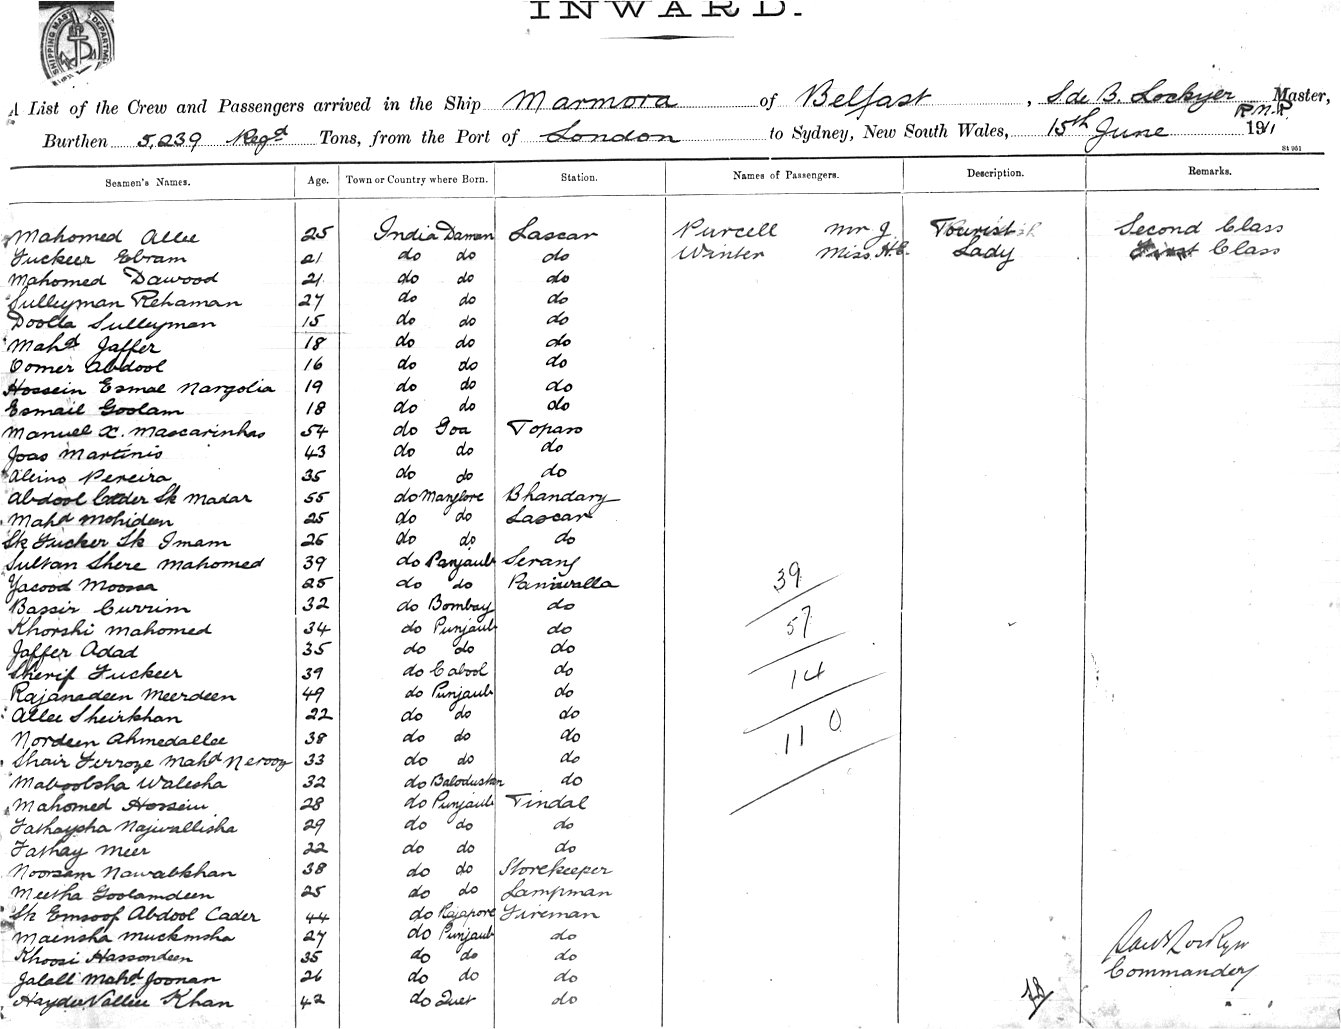 INWARD.
SHIPPING MASTER DEPARTMENT
A List of the Crew and Passengers arrived in the Ship Marmora of Belfast, S de B. Lockyer Master,
R.N.R
Burthen 5,239 Regd Tons, from the Port of London to Sydney, New South Wales, 15th June 1911
St 951
Seamen's Names. Age. Town or Country where Born. Station. Names of Passengers. Description. Remarks.
Mahomed Allee 25 India Daman Lascar Purcell Mr J. Tourist Second Class
Fuckeer Ebram 21 do do do Winter Miss H.E. Lady First Class
Mahomed Dawood 21 do do do
Sulleyman Rehaman 27 do do do
Doolla Sulleyman 15 do do do
Mahd Jaffer 18 do do do
Oomer Abdool 16 do do do
Hossein Esmal Nargolia 19 do do do
Esmail Goolam 18 do do do
Manuel X. Mascarinhas 54 do Goa Topass
Joas Martinis 43 do do do
Aleino Pereira 35 do do do
Abdool Cader Sk Madar 55 do Manglore Bhandary
Mahd Mohideen 25 do do Lascar
Sk Fucker Sk Imam 26 do do do
Sultan Shere Mahomed 39 do Panjaub Serang
39
Yacood Moosa 25 do do Paniwalla
Bassir Currim 32 do Bombay do
57
Khorshi Mahomed 34 do Punjaub do
Jaffer Adad 35 do do do
Sherif Fuckeer 39 do Cabool do
14
Rajanadeen Meerdeen 49 do Punjaub do
Allee Sheirkhan 22 do do do
110
Nordeen Ahmedallee 38 do do do
Shair Ferroze Mahd Nerooz 33 do do do
Maboobsha Walesha 32 do Balodustan do
Mahomed Hossein 28 do Punjaub Tindal
Fathaysha Najwallisha 29 do do do
Fathay Meer 22 do do do
Noorsam Nawabkhan 38 do do Storekeeper
Meetha Goolamdeen 25 do do Lampman
Sk Emsoof Abdool Cader 44 do Rajapore Fireman
Maensha Muckmsha 27 do Punjaub do
Khoosi Hassondeen 35 do do do
Commander
Jalall Mahd Joonan 26 do do do
Hayder Vallee Khan 42 do Quet do